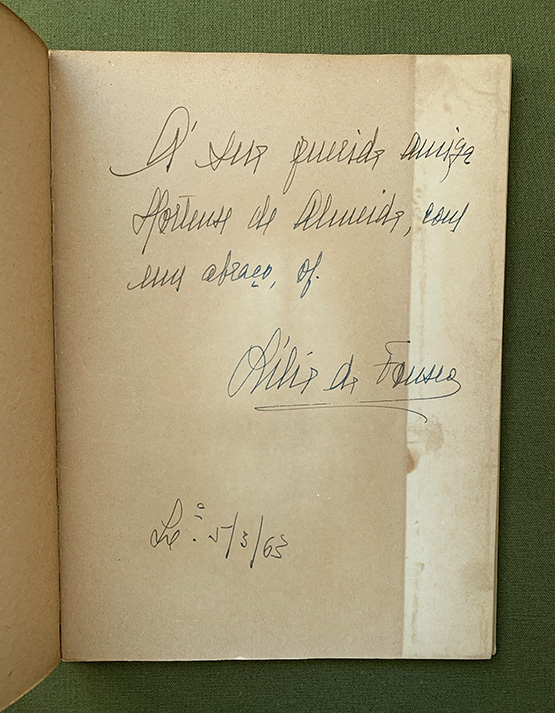 À sua querida amiga
Hortense de Almeida, com
um abraço, of.
Lília da Fonseca
Lxª. 5/3/63